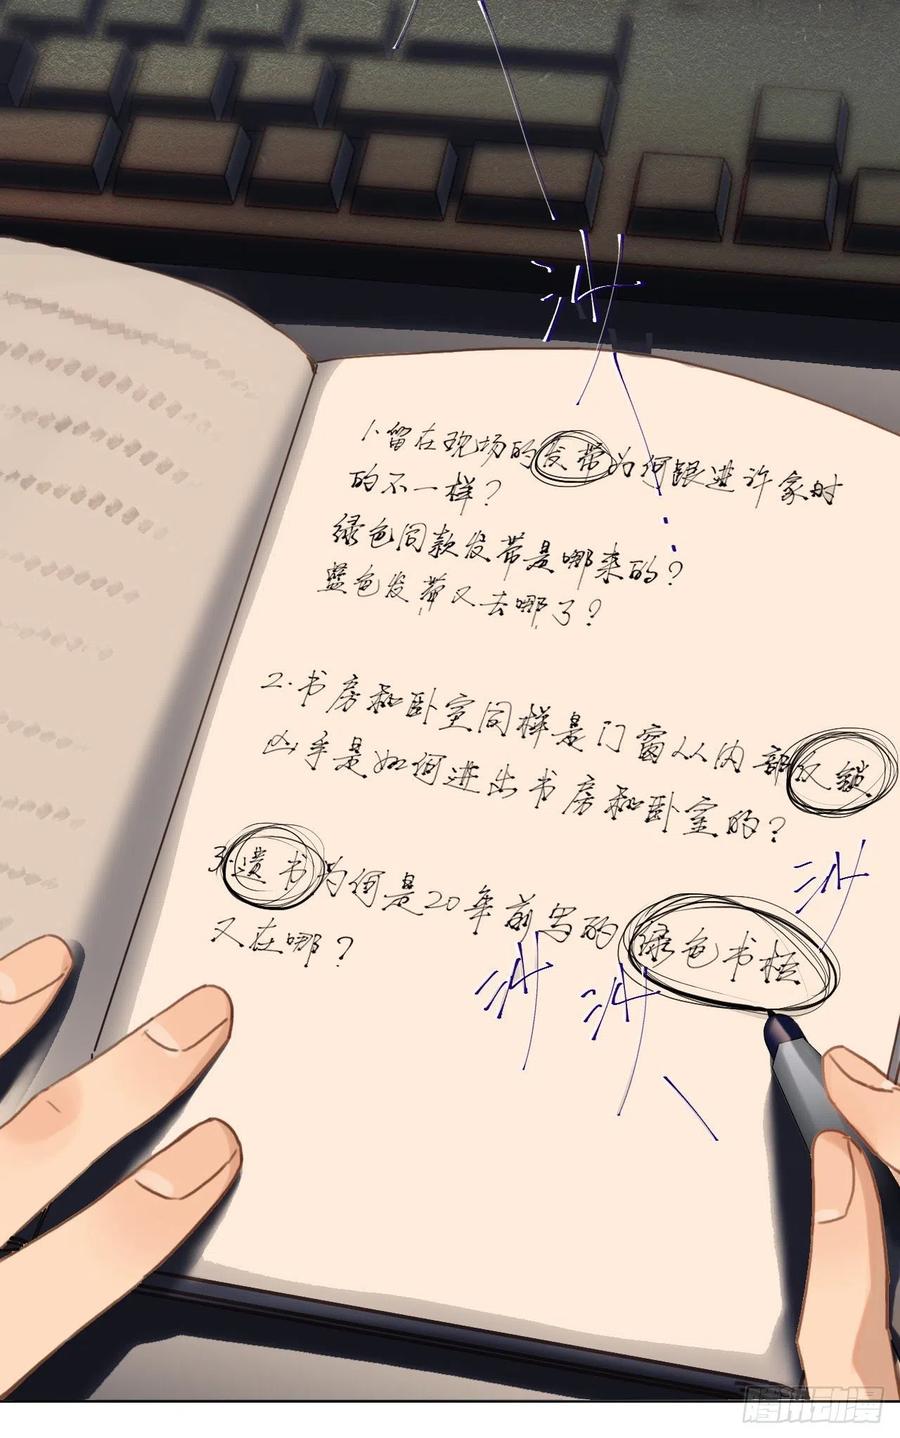 沙
1.留在现场的发带为何跟进许家时
的不一样?
绿色同款发带是哪来的?
蓝色发带又去哪了?
2.书房和卧室同样是门窗从内部反锁
凶手是如何进出书房和卧室的?
3.遗书为何是20年前写的绿色书桓
又在哪?
沙
沙
沙
腾讯动漫